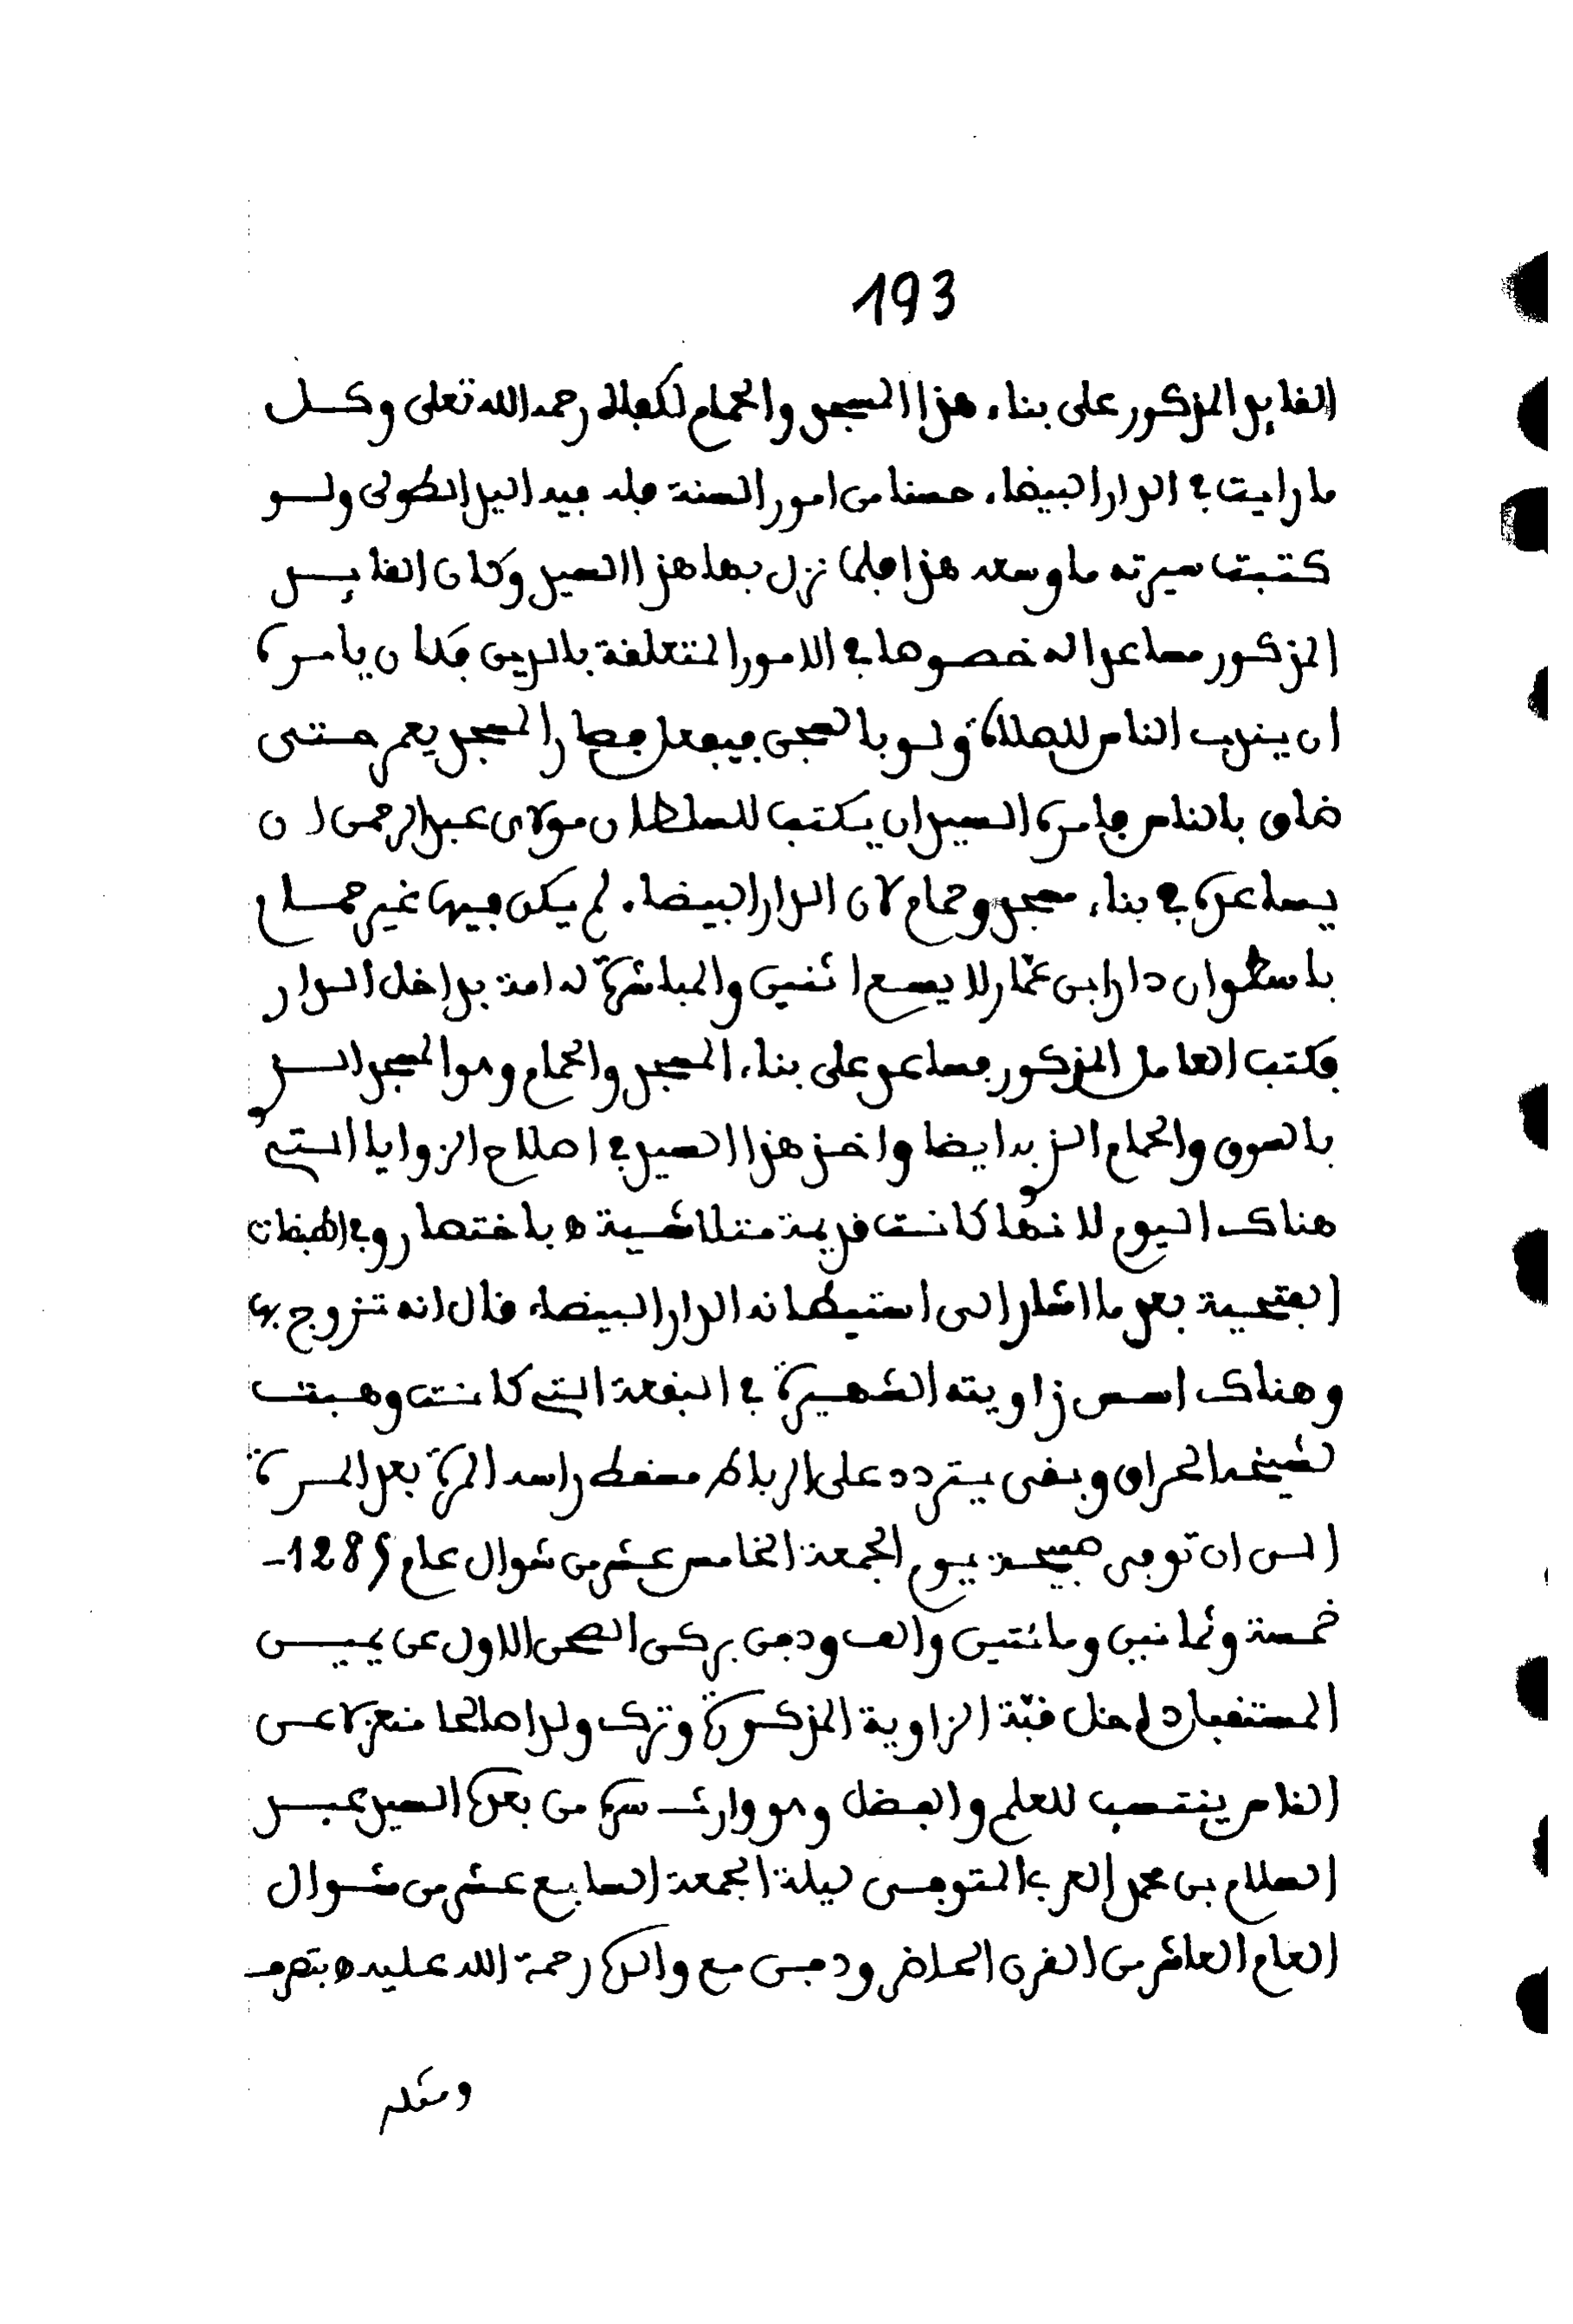 193
القايد المذكور على بناء هذا المسجد والحمام لكماله رحمه الله تعلى وكل
ما رايت في الدار البيضاء حسنا من امور السنة فله فيه اليد الطولى ولو
كتبت سيرته ما وسعه هذا فلما نزل بها هذا السيد وكان القايد
المذكور مساعدا له خصوصا في الامور المتعلقة بالدين فكان يامره
ان يندب الناس للصلاة ولو بالسجن فيفعل فصار المسجد يعمر حتى
ضاق بالناس فامره السيد ان يكتب للسلطان مولاي عبد الرحمن ان
يساعده في بناء مسجد وحمام لان الدار البيضاء لم يكن فيها غير حمام
باسطوان دار ابن عمّار لا يسع اثنين والمباشرة له امة بداخل الدار
فكتب العامل المذكور فساعد على بناء المسجد والحمام وهو المسجد الذ
بالسوق والحمام الذ به ايضا واخذ هذا السيد في اصلاح الزوايا التي
هناك اليوم لانها كانت قرية متلاشية ه باختصار وفي الطبقات
الفتحية بعد ما اشار الى استيطانه الدار البيضاء قال انه تزوج بها
وهناك اسس زاويته الشهيرة في البقعة التي كانت وهبت
لشيخه الحراق وبقى يتردد على الرباط مسقط راسه المرة بعد المرة
الى ان توفى صبيحة يوم الجمعة الخامس عشر من شوال عام 1285 -
خمسة وثمانين ومائتين والف ودفن بركن الصحن الاول عن يمين
المستقبل داخل قبّة الزاوية المذكورة وترك ولدا صالحا منعزلا عن
الناس ينتسب للعلم والفضل وهو وارث سره من بعده السيد عبد
السلام بن محمد العربي المتوفى ليلة الجمعة السابع عشر من شوال
العام العاشر من القرن الحاضر ودفن مع والده رحمة الله عليه ه بتصرف
ومثله